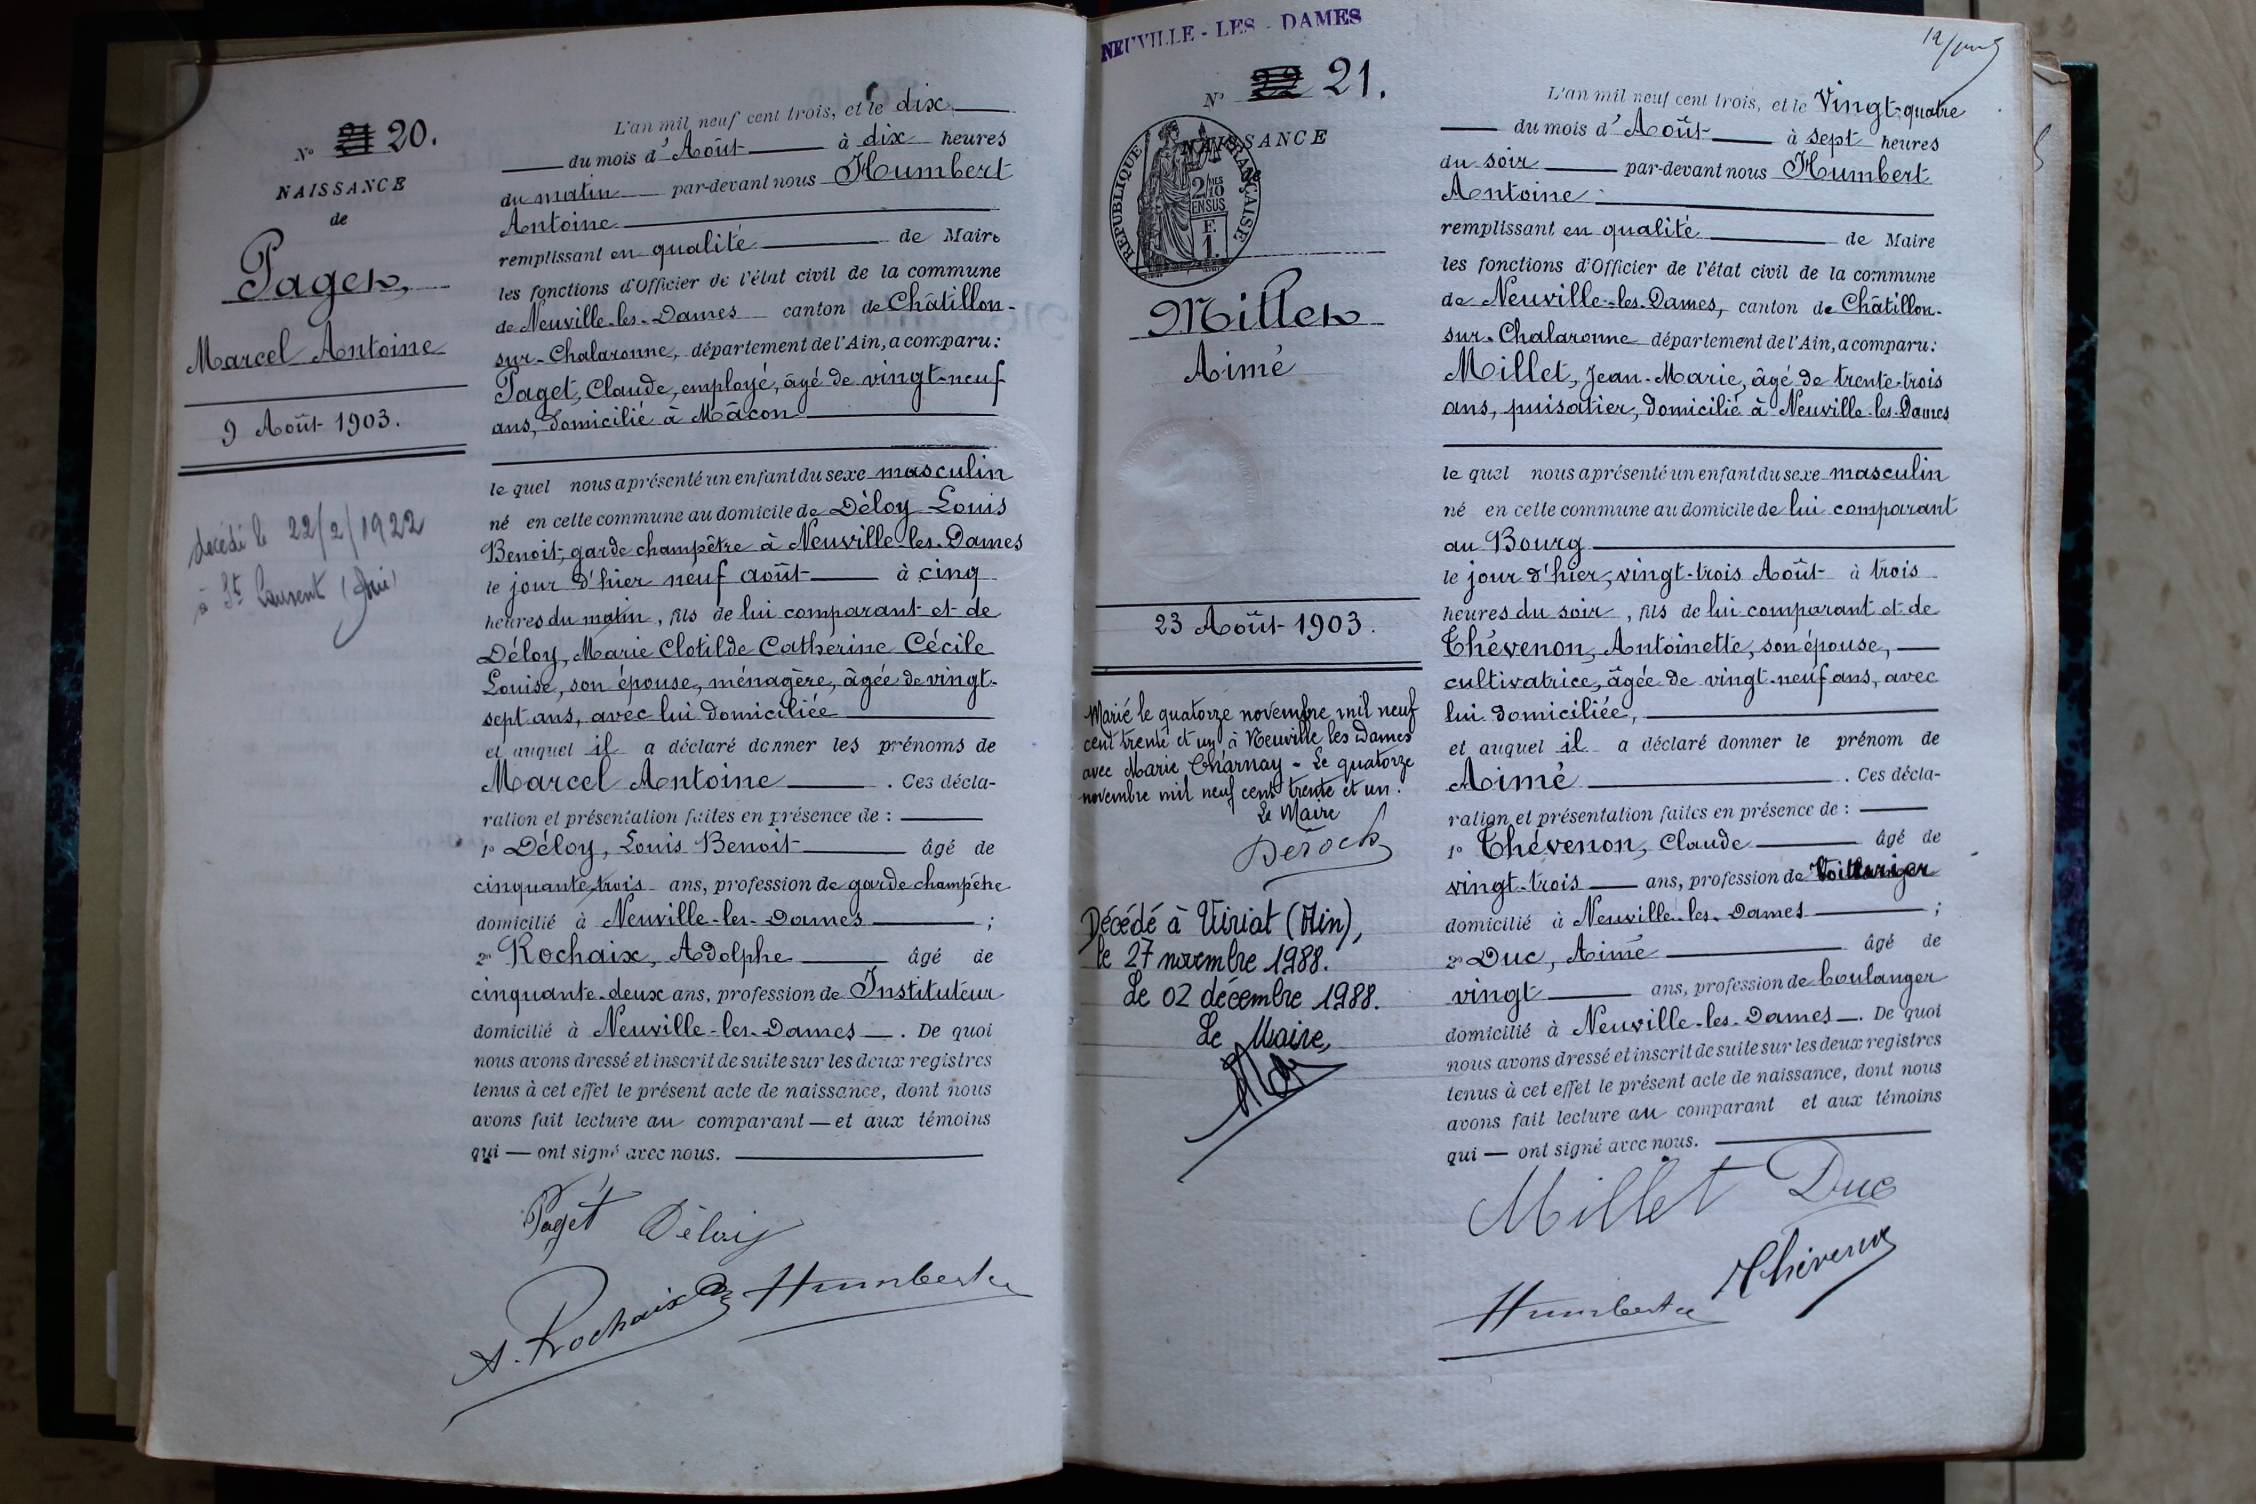 N° 20.
NAISSANCE
de
Paget,
Marcel Antoine
9 Août 1903.
décédé le 22/2/1922
à St Laurent (Ain)
L'an mil neuf cent trois, et le dix
du mois d'Août à dix heures
du matin par-devant nous Humbert
Antoine
remplissant en qualité de Maire
les fonctions d'Officier de l'état civil de la commune
de Neuville-les-Dames canton de Châtillon-
sur-Chalaronne, département de l'Ain, a comparu:
Paget, Claude, employé, âgé de vingt-neuf
ans, domicilié à Mâcon
le quel nous a présenté un enfant du sexe masculin
né en cette commune au domicile de Déloy Louis
Benoit, garde champêtre à Neuville-les-Dames
le jour d'hier neuf août à cinq
heures du matin, fils de lui comparant et de
Déloy, Marie Clotilde Catherine Cécile
Louise, son épouse, ménagère, âgée de vingt-
sept ans, avec lui domiciliée
et auquel il a déclaré donner les prénoms de
Marcel Antoine . Ces décla-
ration et présentation faites en présence de :
1° Déloy, Louis Benoit âgé de
cinquante-trois ans, profession de garde champêtre
domicilié à Neuville-les-Dames ;
2° Rochaix, Adolphe âgé de
cinquante-deux ans, profession de Instituteur
domicilié à Neuville-les-Dames . De quoi
nous avons dressé et inscrit de suite sur les deux registres
tenus à cet effet le présent acte de naissance, dont nous
avons fait lecture au comparant — et aux témoins
qui — ont signé avec nous.
Paget Déloy
A. Rochaix Humbert
NEUVILLE - LES - DAMES
N° 22 21.
NAISSANCE
de
RÉPUBLIQUE FRANÇAISE
2/10
EN SUS
E
1.
Millet
Aimé
23 Août 1903.
Marié le quatorze novembre mil neuf
cent trente et un à Neuville les Dames
avec Marie Charnay - Le quatorze
novembre mil neuf cent trente et un.
Le Maire
Décédé à Viriat (Ain),
le 27 novembre 1988.
Le 02 décembre 1988.
Le Maire,
L'an mil neuf cent trois, et le Vingt-quatre
du mois d'Août à sept heures
du soir par-devant nous Humbert
Antoine
remplissant en qualité de Maire
les fonctions d'Officier de l'état civil de la commune
de Neuville-les-Dames, canton de Châtillon-
sur-Chalaronne département de l'Ain, a comparu:
Millet, Jean-Marie, âgé de trente-trois
ans, puisatier, domicilié à Neuville-les-Dames
le quel nous a présenté un enfant du sexe masculin
né en cette commune au domicile de lui comparant
au Bourg
le jour d'hier, vingt-trois Août à trois
heures du soir, fils de lui comparant et de
Thévenon, Antoinette, son épouse,
cultivatrice, âgée de vingt-neuf ans, avec
lui domiciliée,
et auquel il a déclaré donner le prénom de
Aimé . Ces décla-
ration et présentation faites en présence de :
1° Thévenon, Claude âgé de
vingt-trois ans, profession de
domicilié à Neuville-les-Dames ;
2° Duc, Aimé âgé de
vingt ans, profession de boulanger
domicilié à Neuville-les-Dames . De quoi
nous avons dressé et inscrit de suite sur les deux registres
tenus à cet effet le présent acte de naissance, dont nous
avons fait lecture au comparant et aux témoins
qui — ont signé avec nous.
Millet Duc
Humbert Thévenon